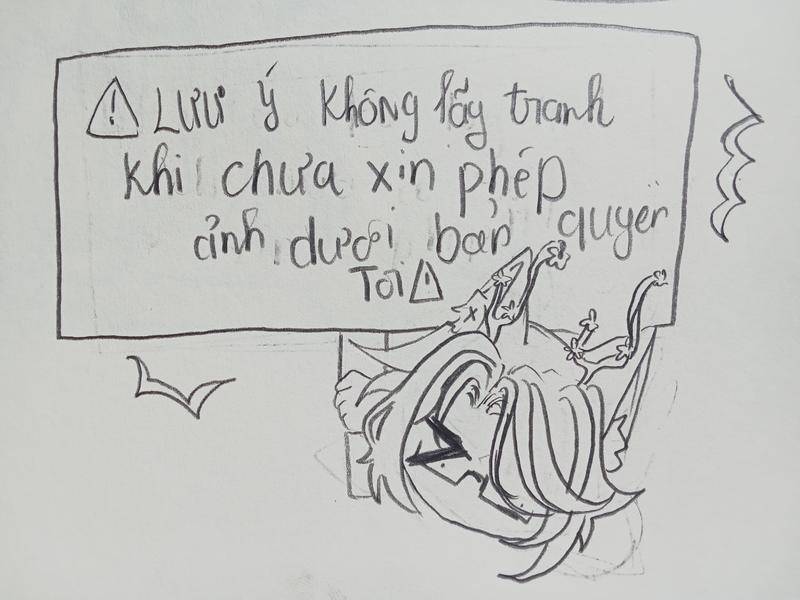 ⚠ LƯU Ý Không lấy tranh
khi chưa xin phép
ảnh dưới bản quyền
Tôi ⚠